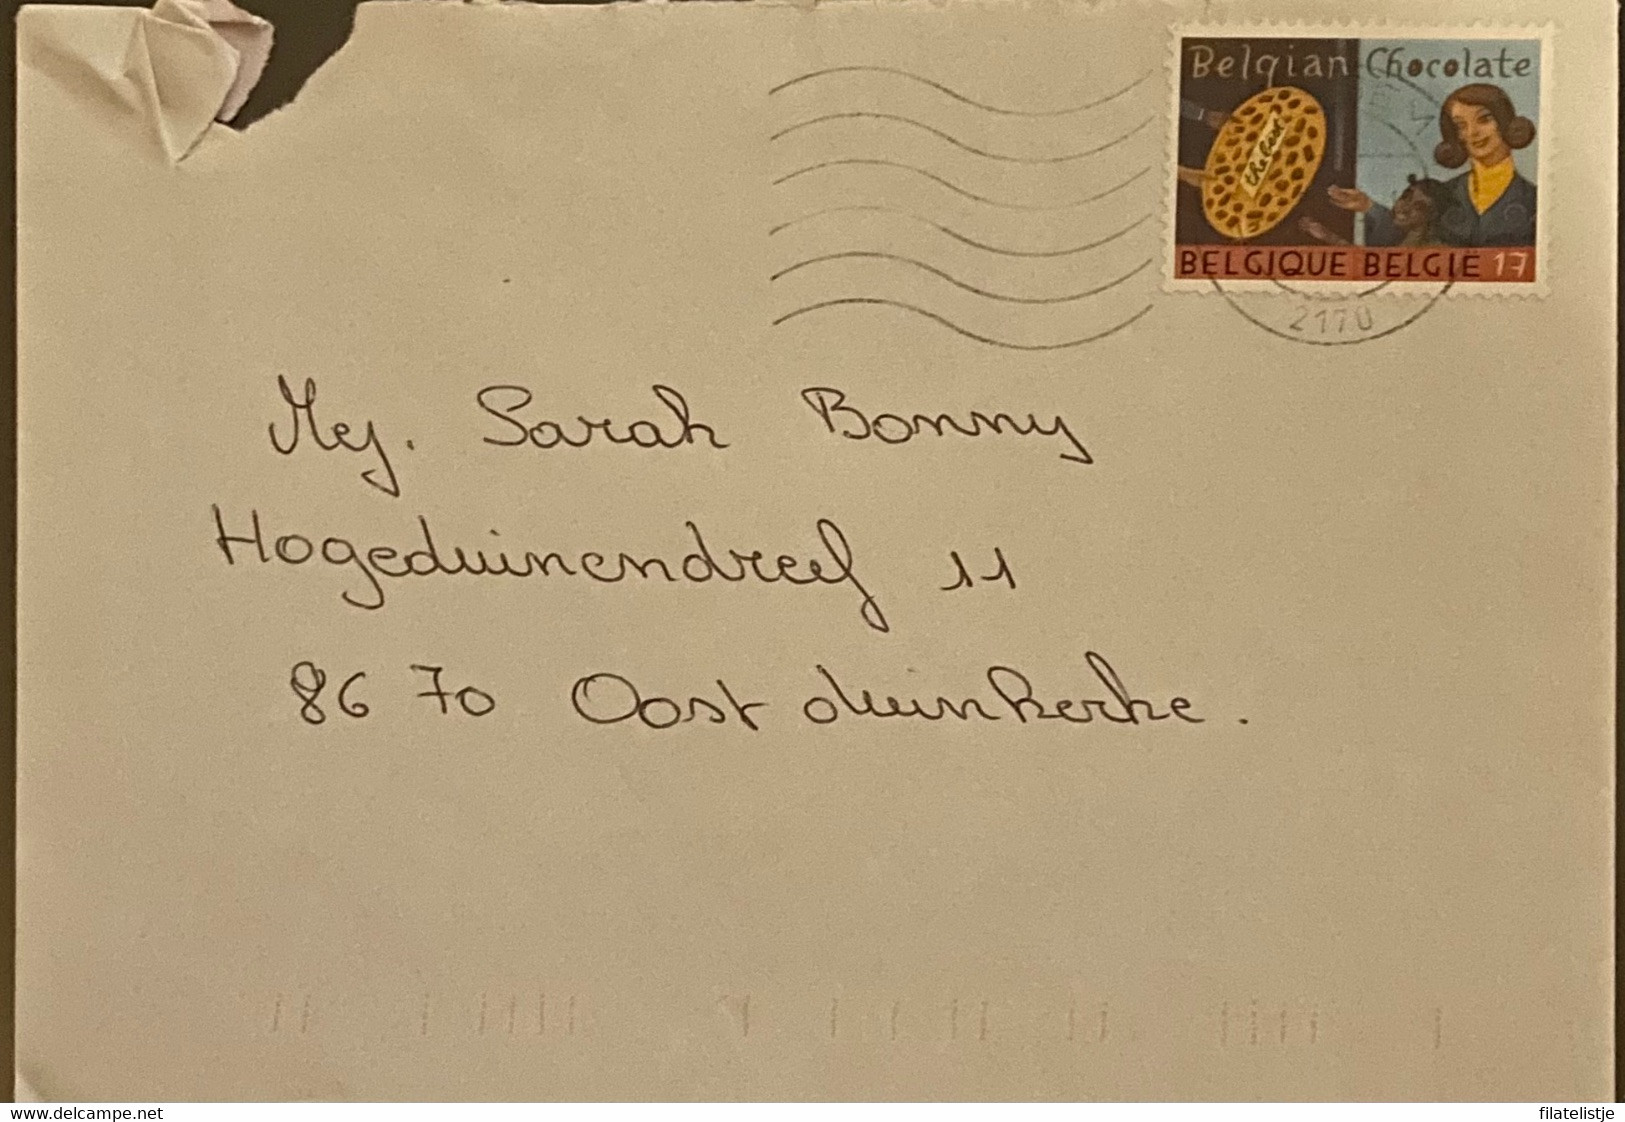 Belgian Chocolate
the best
BELGIQUE BELGIË 17
2170
Mej. Sarah Bonny
Hogeduinendreef 11
8670 Oostduinkerke.
www.delcampe.net
filatelistje